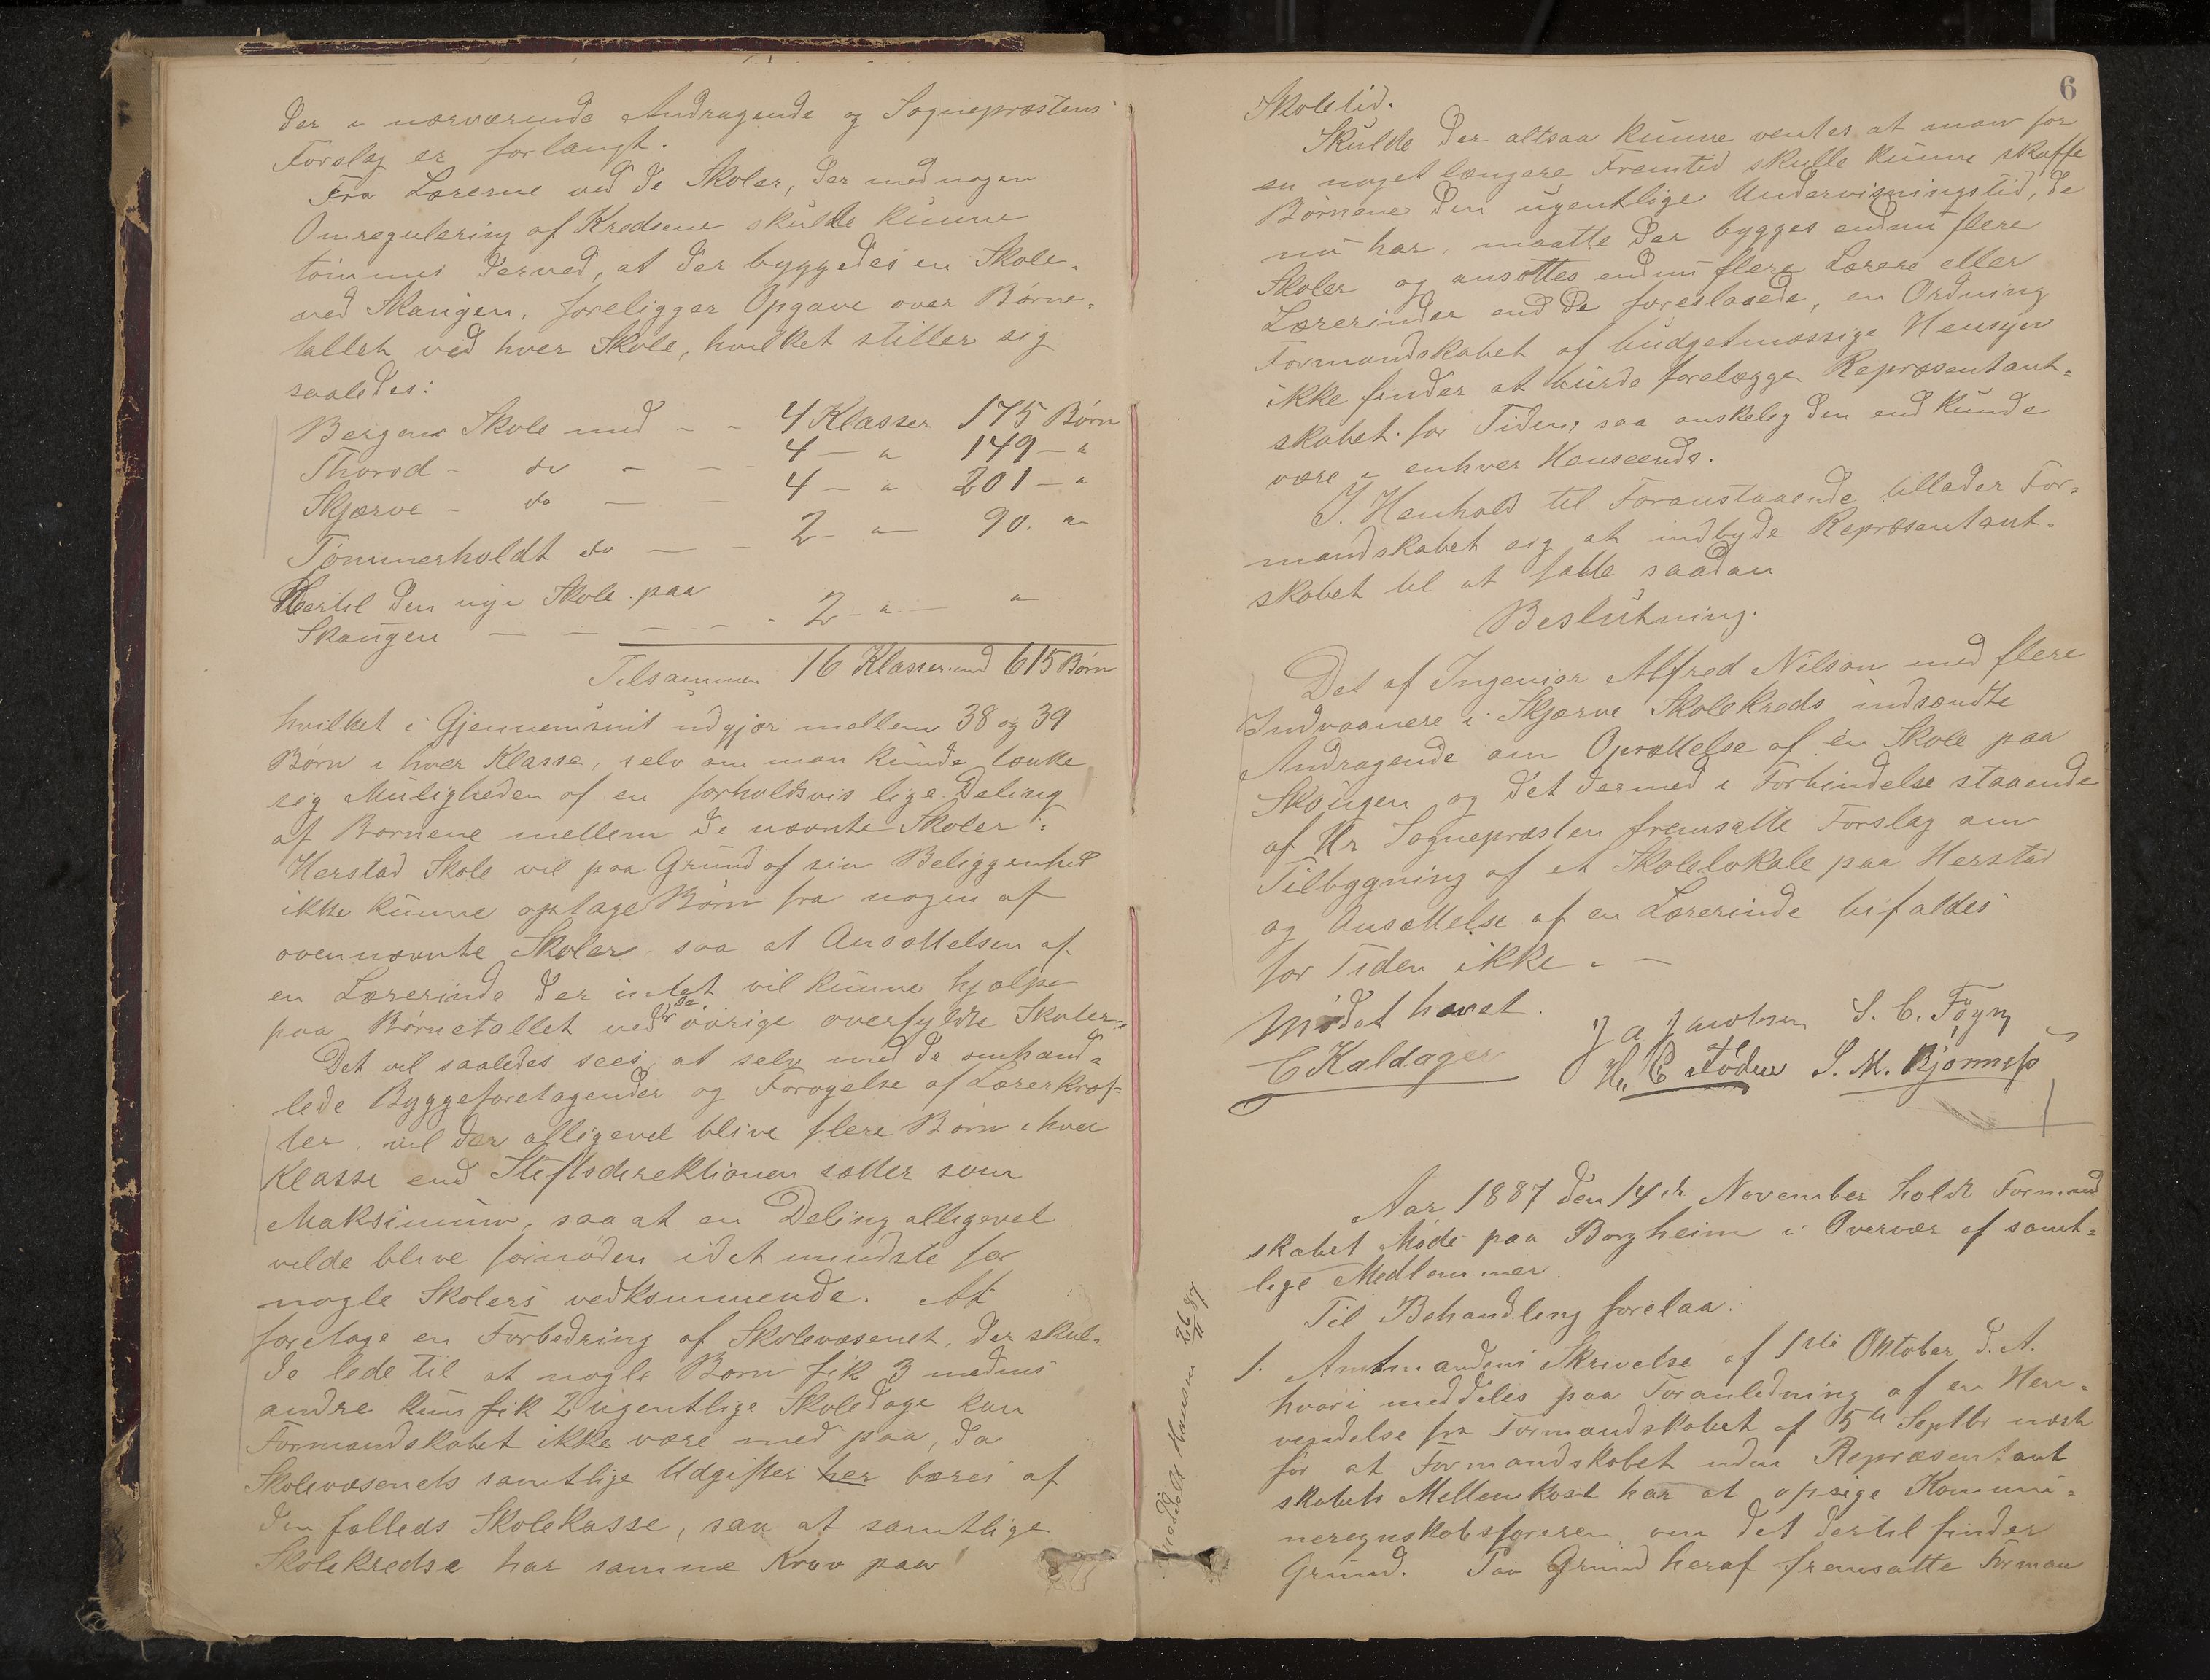 der i nærværende Andragende og Sogneprestens
Forslag er forlangt.
Fra Lærerne ved de Skoler, der med nogen
Omregulering af Kredsene skulde kunne
tömmes derved, at der byggedes en Skole
ved Skaugen, foreligger Opgave over Börne-
tallet ved hver Skole, hvilket stiller sig
saaledes:
Bergan Skole med - - 4 Klasser 175 Børn
Thorød - do - - 4 - " 149 - "
Skjærve - do - - 4 - " 201 - "
Tømmerholdt do - - 2 - " 90. "
Hertil den nye Skole paa
Skaugen - - - - - 2 - " - "
Tilsammen 16 Klasser med 615 Børn
hvilket i Gjennemsnit udgjør mellem 38 og 39
Børn i hver Klasse, selv om man kunde tænke
sig Muligheden af en forholdsvis lige Deling
af Børnene mellem de nævnte Skoler:
Herstad Skole vil paa Grund af sin Beliggenhed
ikke kunne optage Børn fra nogen af
ovennævnte Skoler saa at Ansættelsen af
en Lærerinde der intet vil kunne hjælpe
paa Børnetallet ved de øvrige overfyldte Skoler.
Det vil saaledes sees, at selv med de omhand-
lede Byggeforetagender og Forøgelse af Lærerkræf-
ter vil der alligevel blive flere Børn i hver
Klasse end Stiftsdirektionen sætter som
Maksimum, saa at en Deling alligevel
vilde blive fornøden idetmindste for
nogle Skolers vedkommende. At
foretage en Forbedring af Skolevæsenet, der skul-
de lede til at nogle Børn fik 3 medens
andre kun fik 2 ugentlige Skoledage kan
Formandskabet ikke være med paa, da
Skolevæsenets samtlige Udgifter her bæres af
den fælleds Skolekasse, saa at samtlige
Skolekredse har samme Krav paa
6
Skoletid.
Skulde der altsaa kunne ventes at man for
en noget længere Fremtid skulle kunne skaffe
Børnene den ugentlige Undervisningstid, de
nu har, maatte der bygges endnu flere
Skoler og ansættes endnu flere Lærere eller
Lærerinder end de foreslaaede, en Ordning
Formandskabet af budgetmæssige Hensyn
ikke finder at burde forelægge Repræsentant-
skabet for Tiden, saa ønskelig den end kunde
være i enhver Henseende.
I Henhold til Foranstaaende tillader For-
mandskabet sig at indbyde Repræsentant-
skabet til at fatte saadan
Beslutning.
Det af Ingeniør Alfred Nilson med flere
Indvaanere i Skjærve Skolekreds indsendte
Andragende om Oprettelse af en Skole paa
Skougen og det dermed i Forbindelse staaende
af Hr Sognepresten fremsatte Forslag om
Tilbygning af et Skolelokale paa Herstad
og Ansættelse af en Lærerinde bifaldes
for Tiden ikke. -
Mødet hævet.
J A Jacobsen S. C. Föyn
C Kaldager H. C. Födne S. M. Bjønness
Aar 1887 den 14de November holdt Formand
skabet Møde paa Borgheim i Overvær af samt-
lige Medlemmer.
Til Behandling forelaa:
1. Amtmandens Skrivelse af 1ste Oktober d. A.
hvori meddeles paa Foranledning af en Hen-
vendelse fra Formandskabet af 5te Septbr næst
før at Formandskabet uden Repræsentant
skabets Mellemkost har at opsige Kommu-
neregnskabsføreren om det dertil finder
Grund. Paa Grund heraf fremsatte Forman
Hansen 26/11 87